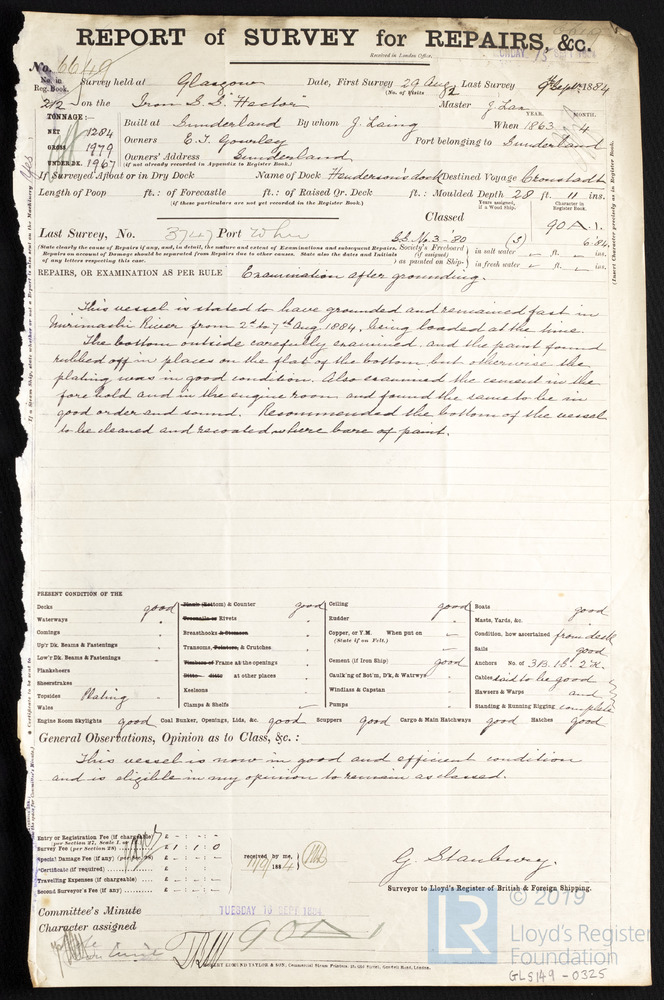 REPORT of SURVEY for REPAIRS, &c.
Received in London Office,
No. 6649
No. in Reg. Book. Survey held at Glasgow Date, First Survey 29 Aug Last Survey 9th Sept. 1884
(No. of Visits 2
212 on the Iron S.S. "Hector" Master J. Lax
TONNAGE:— Built at Sunderland By whom J. Laing When 1863 4
YEAR. MONTH.
NET 1284
GROSS 1979 Owners E. T. Gourley Port belonging to Sunderland
UNDER DK. 1967 Owners' Address Sunderland
(if not already recorded in Appendix to Register Book.)
If Surveyed Afloat or in Dry Dock Name of Dock Henderson's dock Destined Voyage Cronstadt
Length of Poop ft.: of Forecastle ft.: of Raised Qr. Deck ft.: Moulded Depth 28 ft. 11 ins.
(if these particulars are not yet recorded in the Register Book.)
Years assigned, if a Wood Ship. Character in Register Book.
Classed 90 A 1.
Last Survey, No. Port S.S. No. 3 - '80 (3) 6.84
(State clearly the cause of Repairs if any, and, in detail, the nature and extent of Examinations and subsequent Repairs.
Repairs on account of Damage should be separated from Repairs due to other causes. State also the dates and Initials
of any letters respecting this case.
Society's Freeboard (if assigned) as painted on Ship- in salt water ft. ins.
in fresh water ft. ins.
REPAIRS, OR EXAMINATION AS PER RULE Examination after grounding.
This vessel is stated to have grounded and remained fast in
River from 2d to 7th Aug 1884, being loaded at the time.
The bottom outside carefully examined, and the paint found
rubbed off in places on the flat of the bottom but otherwise the
plating was in good condition. Also examined the cement in the
fore hold and in the engine room and found the same to be in
good order and sound. Recommended the bottom of the vessel
to be cleaned and recoated where bare of paint.
PRESENT CONDITION OF THE
Decks good
Waterways "
Comings "
Up'r Dk. Beams & Fastenings "
Low'r Dk. Beams & Fastenings "
Planksheers
Sheerstrakes
Topsides Plating
Wales
Plank (Bottom) & Counter good
Treenails or Rivets "
Breasthooks & Stemson "
Transoms, Pointers, & Crutches "
Timbers or Frame at the openings "
Ditto ditto at other places "
Keelsons "
Clamps & Shelfs "
Ceiling good
Rudder "
Copper, or Y.M. When put on
(State if on Felt.)
Cement (if Iron Ship) good
Caulk'ng of Bot'm, D'k, & Waterw'ys "
Windlass & Capstan "
Pumps "
Boats good
Masts, Yards, &c. "
Condition, how ascertained from deck
Sails good
Anchors No. of 3B. 1S. 2K.
Cables said to be good
Hawsers & Warps and
Standing & Running Rigging complete
Engine Room Skylights good Coal Bunker, Openings, Lids, &c. good Scuppers good Cargo & Main Hatchways good Hatches good
General Observations, Opinion as to Class, &c. :
This vessel is now in good and efficient condition
and is eligible in my opinion to remain as classed.
Entry or Registration Fee (if chargeable) £ - : - : -
(per Section 27, Scale I. or
Survey Fee (per Section 28) £ 1 : 1 : 0
Special Damage Fee (if any) £ - : - : -
*Certificate (if required) £ : :
Travelling Expenses (if chargeable) £ : :
Second Surveyor's Fee (if any) £ : :
received by me, 11/9/1884
G. Stanbury.
Surveyor to Lloyd's Register of British & Foreign Shipping.
Committee's Minute TUESDAY SEPT 1884
Character assigned 90A1
EDMUND TAYLOR & SON, Commercial Steam Printers
© 2019
LR
Lloyd's Register
Foundation
GLS149-0325